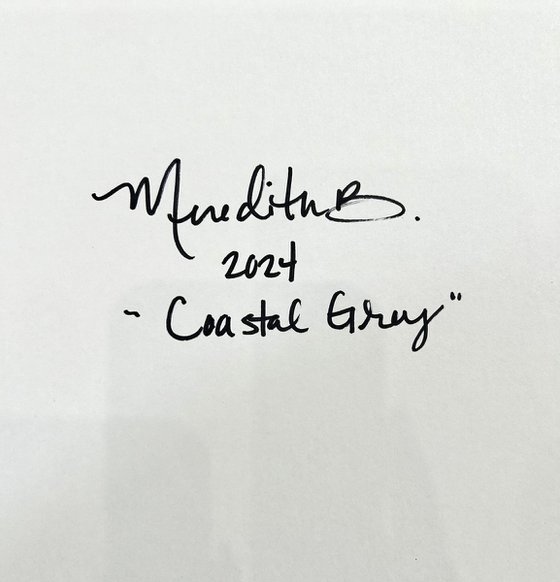 Meredith B.
2024
"Coastal Grey"